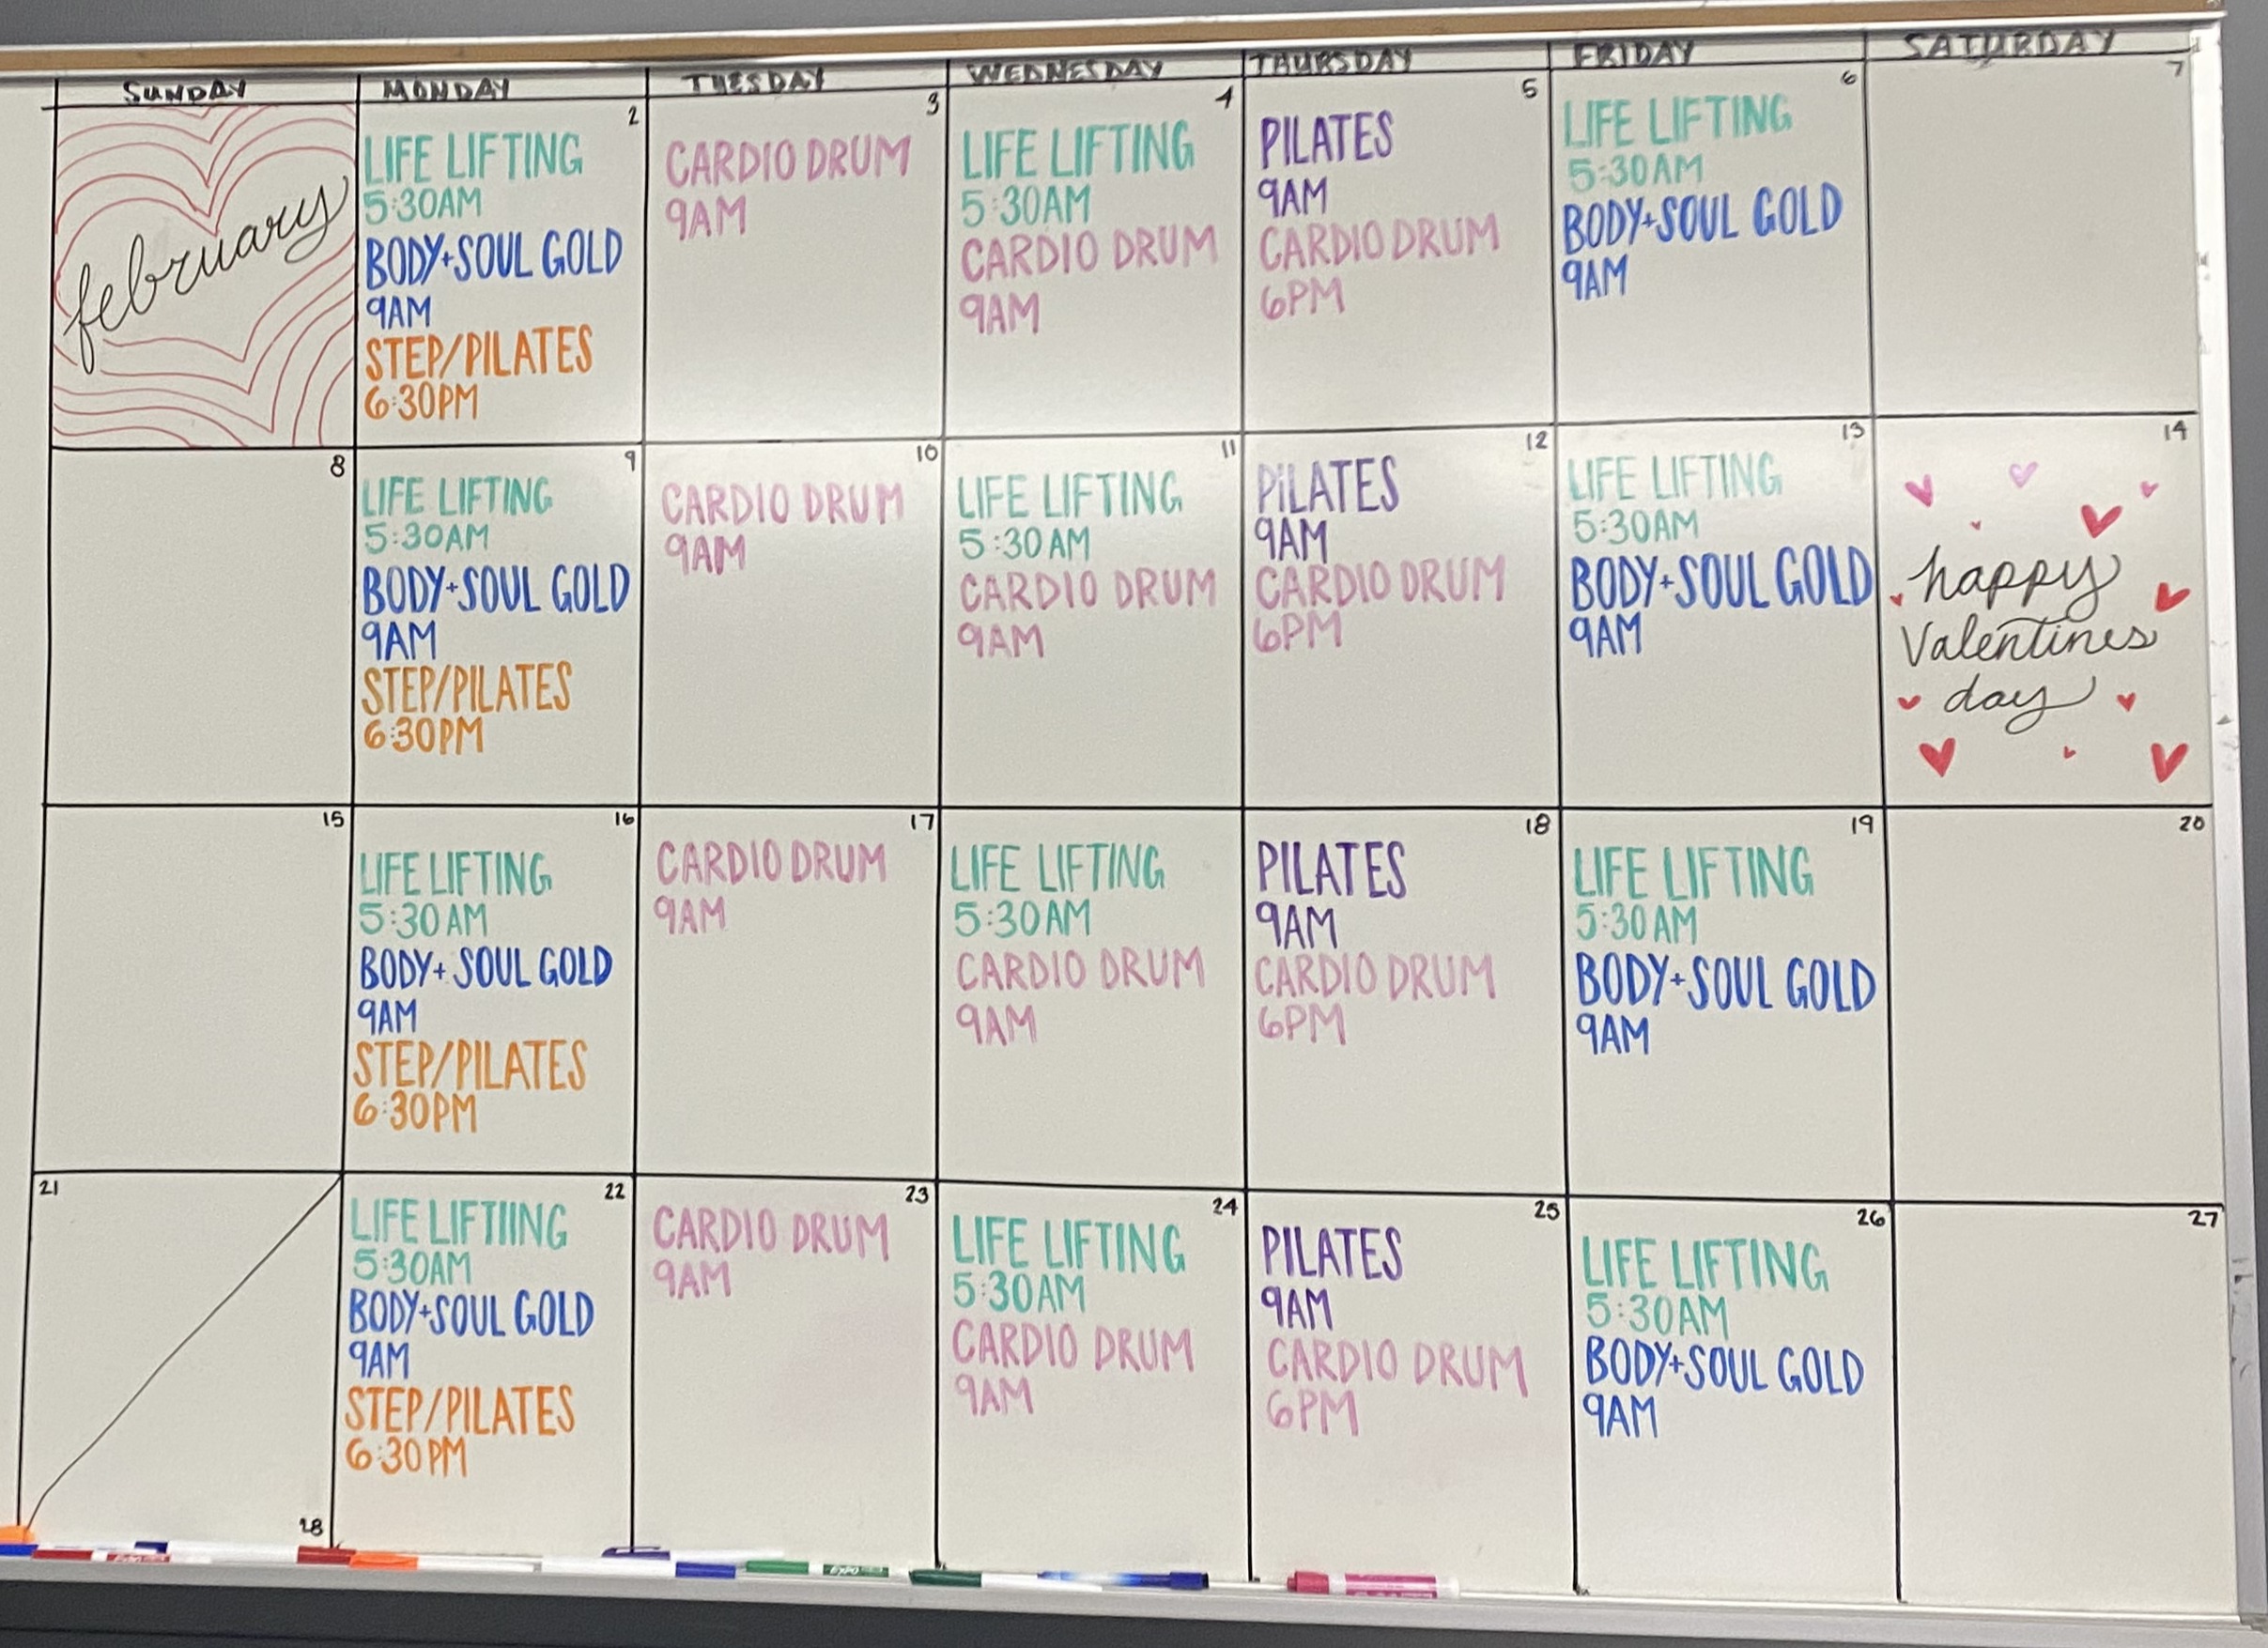 SUNDAY MONDAY TUESDAY WEDNESDAY THURSDAY FRIDAY SATURDAY
february
2
LIFE LIFTING
5:30AM
BODY+SOUL GOLD
9AM
STEP/PILATES
6:30PM
3
CARDIO DRUM
9AM
4
LIFE LIFTING
5:30AM
CARDIO DRUM
9AM
5
PILATES
9AM
CARDIO DRUM
6PM
6
LIFE LIFTING
5:30AM
BODY+SOUL GOLD
9AM
7
8
9
LIFE LIFTING
5:30AM
BODY+SOUL GOLD
9AM
STEP/PILATES
6:30PM
10
CARDIO DRUM
9AM
11
LIFE LIFTING
5:30AM
CARDIO DRUM
9AM
12
PiLATES
9AM
CARDIO DRUM
6PM
13
LIFE LIFTING
5:30AM
BODY+SOUL GOLD
9AM
14
happy
Valentines
day
15
16
LIFE LIFTING
5:30AM
BODY+SOUL GOLD
9AM
STEP/PILATES
6:30PM
17
CARDIO DRUM
9AM
18
LIFE LIFTING
5:30AM
CARDIO DRUM
9AM
PILATES
9AM
CARDIO DRUM
6PM
19
LIFE LIFTING
5:30AM
BODY+SOUL GOLD
9AM
20
21
28
22
LIFE LIFTIING
5:30AM
BODY+SOUL GOLD
9AM
STEP/PILATES
6:30PM
23
CARDIO DRUM
9AM
24
LIFE LIFTING
5:30AM
CARDIO DRUM
9AM
25
PILATES
9AM
CARDIO DRUM
6PM
26
LIFE LIFTING
5:30AM
BODY+SOUL GOLD
9AM
27
EXPO